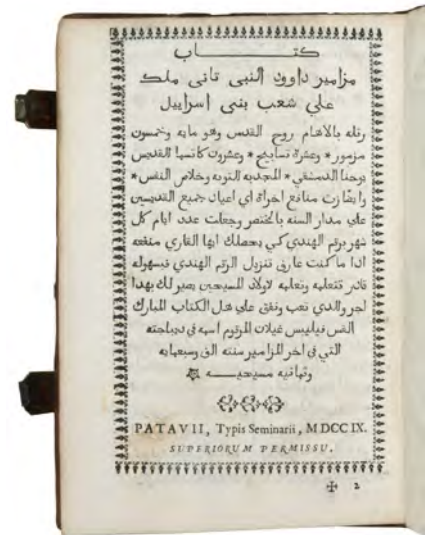 كتاب
مزامير داوود النبي تاني ملك
علي شعب بني اسراييل
رتله بالاهام روح القدس وهو مايه وخمسون
مزمور * وعشرة تسابيح * وعشرون كاتسما القديس
يوحنا الدمشقي * المجديه التوبه وخلاص النفس *
وايضا زت منافع اجراة اي اعيان جميع القديسين
علي مدار السنه بالختصر وجعلت عدد ايام كل
شهر برقم الهندي كي يحصلك ايها القاري منفعه
ادا ما كنت عارف تنزيل الرقم الهندي فبسهوله
قادر تتعلمه وتعلمه لاولاد المسيحيين يصير لك بهدا
اجر والدي تعب ونفق علي هدا الكتاب المبارك
القس فيليبس غيلان المرقوم اسمه في ديباجته
التي في اخر المزامير سنة الف وسبعمايه
وثمانيه مسيحيه
PATAVII, Typis Seminarii, MDCCIX.
SUPERIORUM PERMISSU.
✠ 2